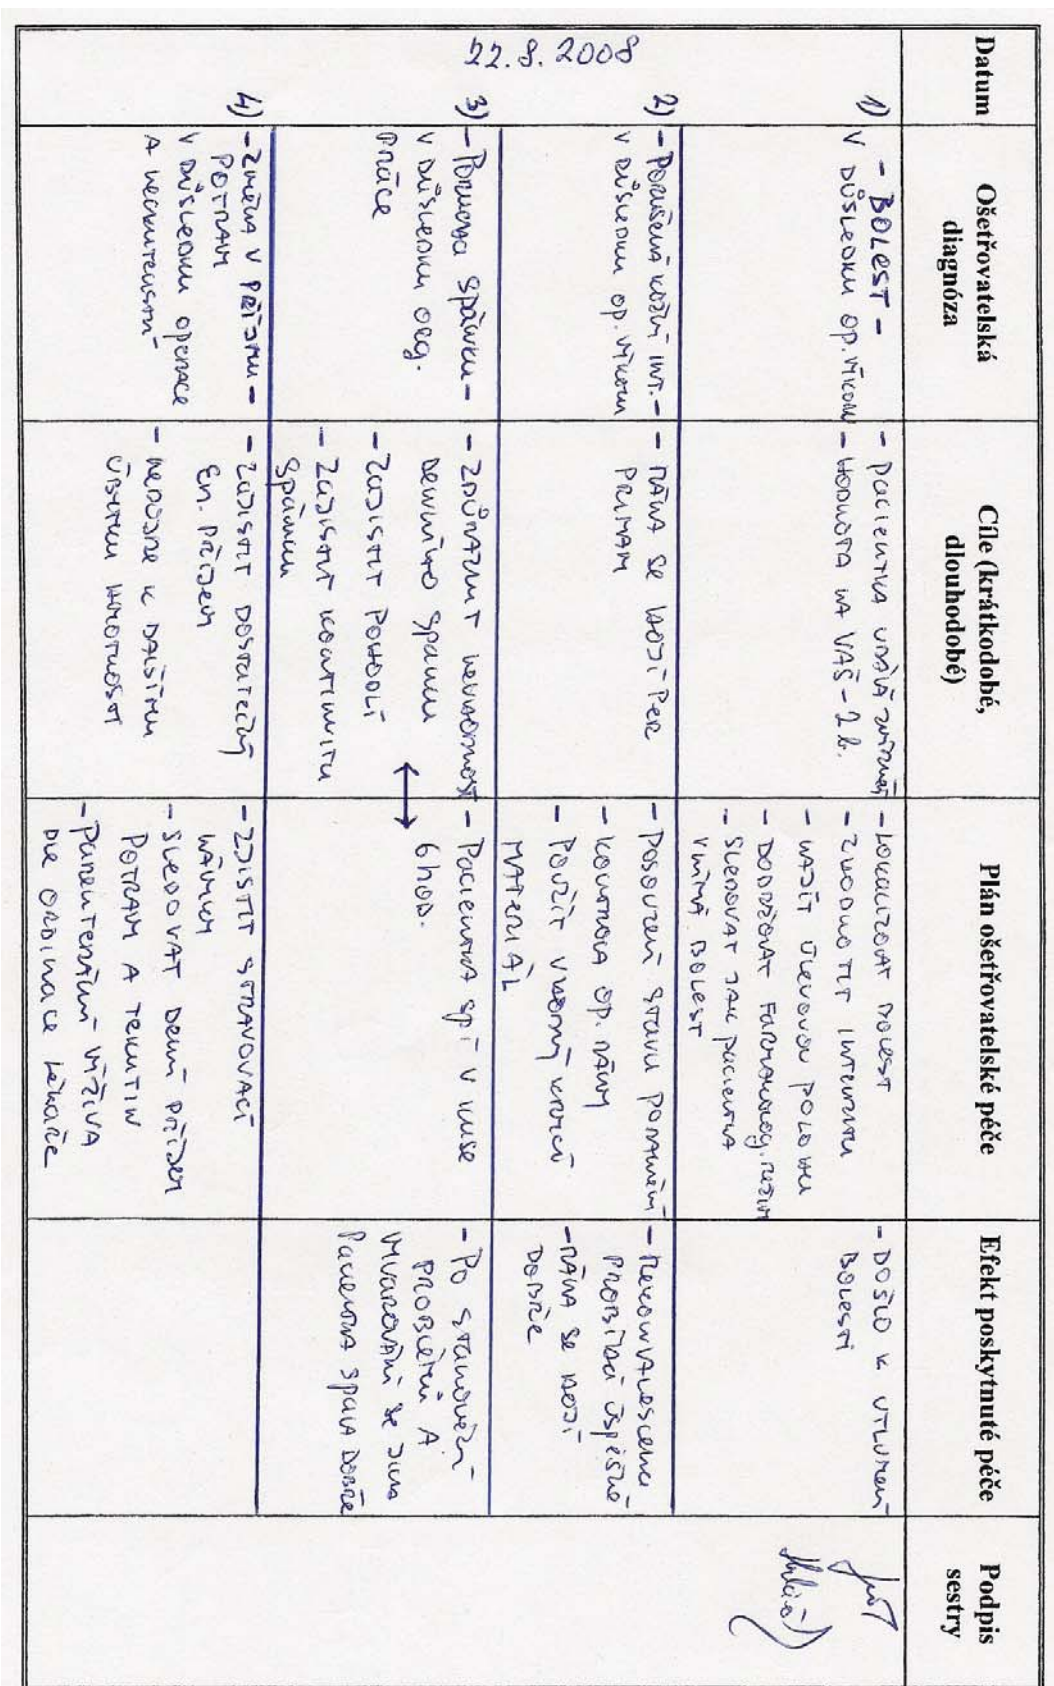 Datum
Ošetřovatelská
diagnóza
Cíle (krátkodobé,
dlouhodobé)
Plán ošetřovatelské péče
Efekt poskytnuté péče
Podpis
sestry
22.8.2008
1)
- BOLEST -
V DŮSLEDKU OP. VÝKONU
- PACIENTKA UDÁVÁ
- HODNOTA NA VAŠ - 2 b.
- LOKALIZOVAT BOLEST
- ZHODNOTIT INTENZITU
- NAJÍT ÚLEVOVOU POLOHU
- DODRŽOVAT FARMAKOLOG. REŽIM
- SLEDOVAT JAK PACIENTKA
VNÍMÁ BOLEST
- DOŠLO K UTLUMENÍ
BOLESTI
2)
- PORUŠENÁ KOŽNÍ INT. -
V DŮSLEDKU OP. VÝKONU
- RÁNA SE HOJÍ PER
PRIMAM
- POSOUZENÍ STAVU PORANĚNÍ
- KONTROLA OP. RÁNY
- POUŽÍT VHODNÝ KRYCÍ
MATERIÁL
- REKONVALESCENCE
PROBÍHÁ ÚSPĚŠNĚ
- RÁNA SE HOJÍ
DOBŘE
3)
- PORUCHA SPÁNKU -
V DŮSLEDKU ORG.
PRÁCE
- ZDŮRAZNIT NEVHODNOST
DENNÍHO SPÁNKU
- ZAJISTIT POHODLÍ
- ZAJISTIT KONTINUITU
SPÁNKU
- PACIENTKA SPÍ V KUSE
6 HOD.
- PO STANOVENÍ
PROBLÉMU A
SE
PACIENTKA SPALA DOBŘE
4)
- ZMĚNA V PŘÍJMU -
POTRAVY
V DŮSLEDKU OPERACE
A NECHUTENSTVÍ
- ZAJISTIT DOSTATEČNÝ
EN. PŘÍJEM
- NEDOJDE K DALŠÍMU
ÚBYTKU HMOTNOSTI
- ZJISTIT STRAVOVACÍ
NÁVYKY
- SLEDOVAT DENNÍ PŘÍJEM
POTRAVY A TEKUTIN
- PARENTERÁLNÍ VÝŽIVA
DLE ORDINACE LÉKAŘE